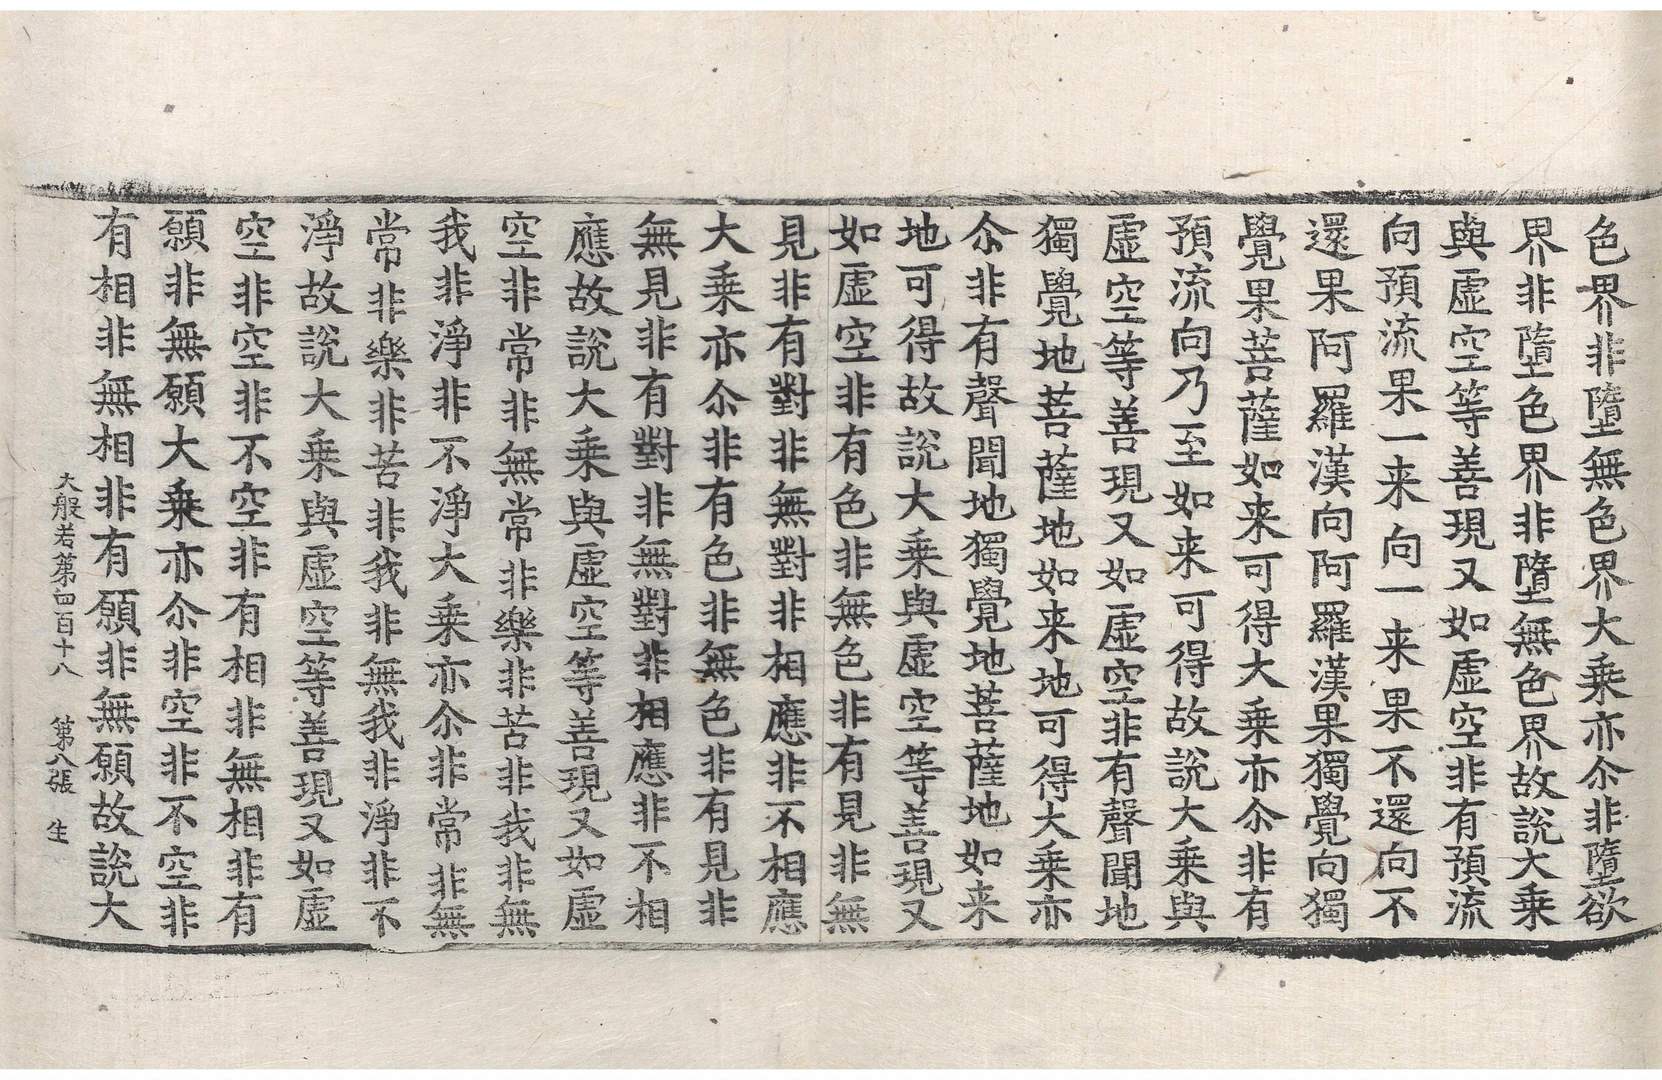 色界非墮無色界大乗亦尒非墮欲
界非墮色界非墮無色界故說大乗
與虛空等善現又如虛空非有預流
向預流果一来向一来果不還向不
還果阿羅漢向阿羅漢果獨覺向獨
覺果菩薩如来可得大乗亦尒非有
預流向乃至如来可得故說大乗與
虛空等善現又如虛空非有聲聞地
獨覺地菩薩地如来地可得大乗亦
尒非有聲聞地獨覺地菩薩地如来
地可得故說大乗與虛空等善現又
如虛空非有色非無色非有見非無
見非有對非無對非相應非不相應
大乗亦尒非有色非無色非有見非
無見非有對非無對非相應非不相
應故說大乗與虛空等善現又如虛
空非常非無常非樂非苦非我非無
我非淨非不淨大乗亦尒非常非無
常非樂非苦非我非無我非淨非不
淨故說大乗與虛空等善現又如虛
空非空非不空非有相非無相非有
願非無願大乗亦尒非空非不空非
有相非無相非有願非無願故說大
大般若第四百十八 第八張 生